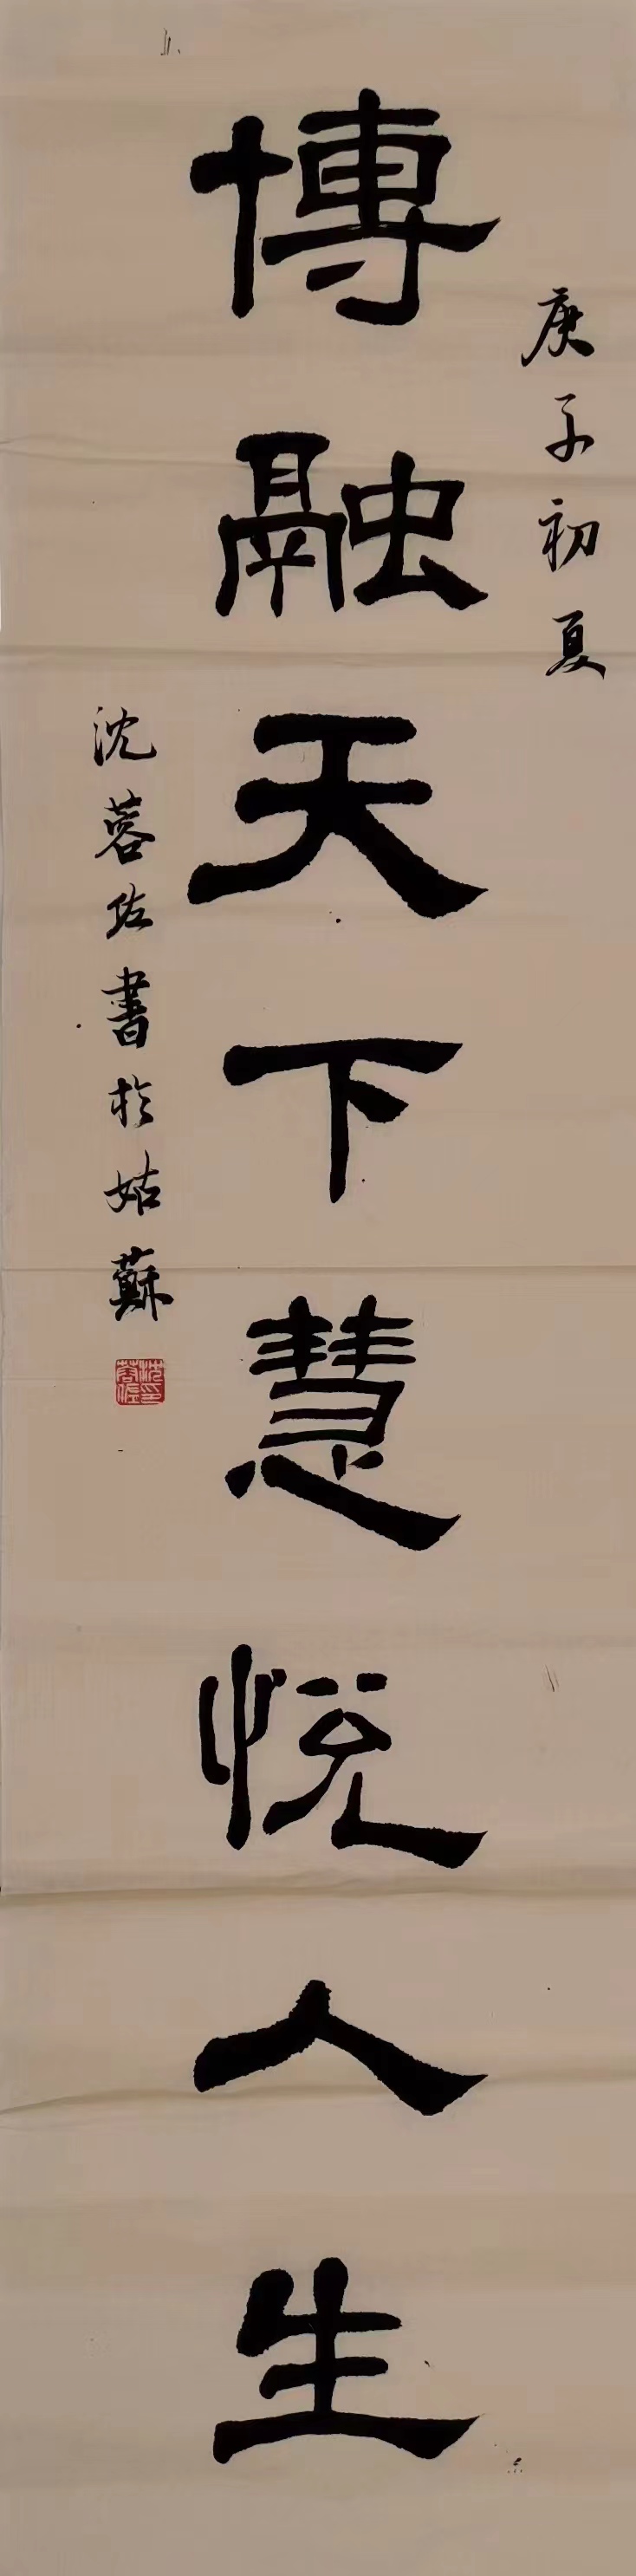 庚子初夏
博融天下慧悦人生
沈蓉佐書於姑蘇